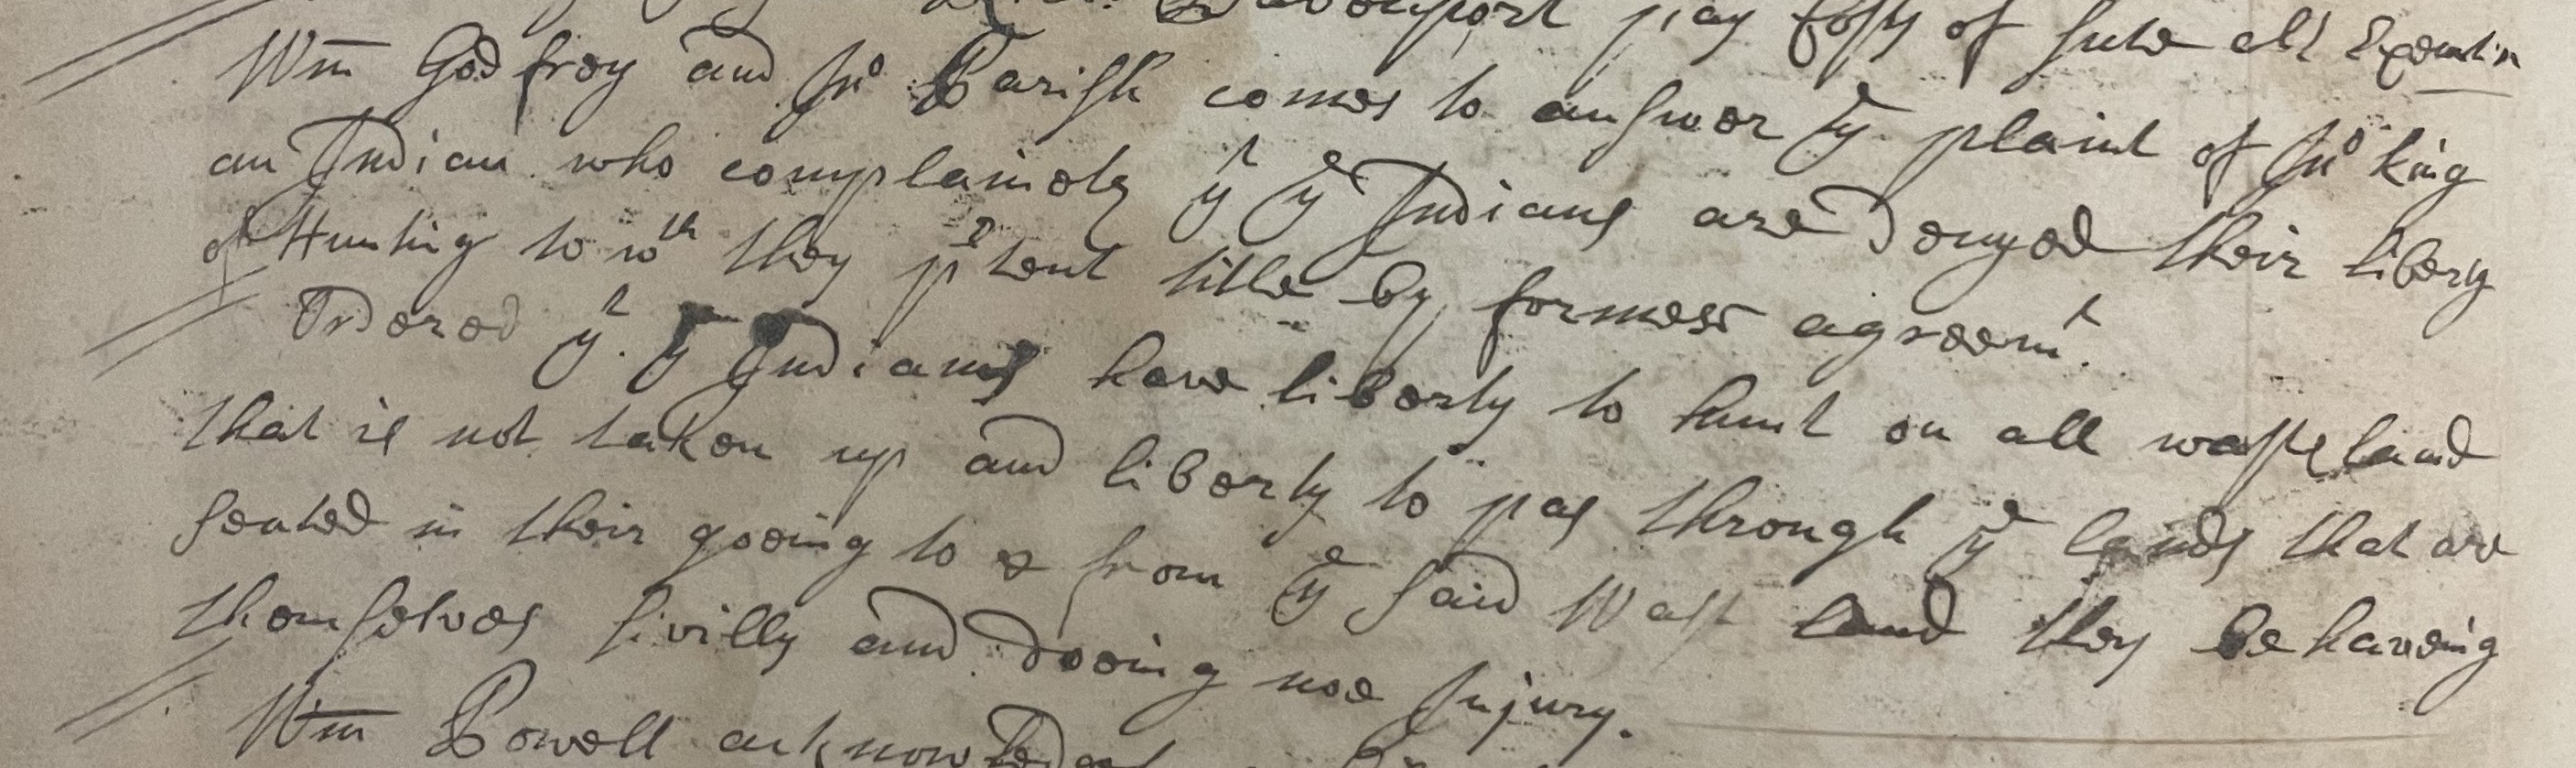 Davenport pay Costs of sute als Execution
Wm Godfrey and Jno Parish comes to answer ye plaint of Jno King
an Indian who complaineth yt ye Indians are Denyed their libery
of Hunting to wch they ptend title by former agreemt.
Ordered yt. ye Indians have liberty to hunt on all waste land
that is not taken up and liberty to pas through ye lands that are
seated in their gooing to & from ye said Wast land they behaveing
themselves sivilly and dooing noe Injury.
Wm Powell acknowledget